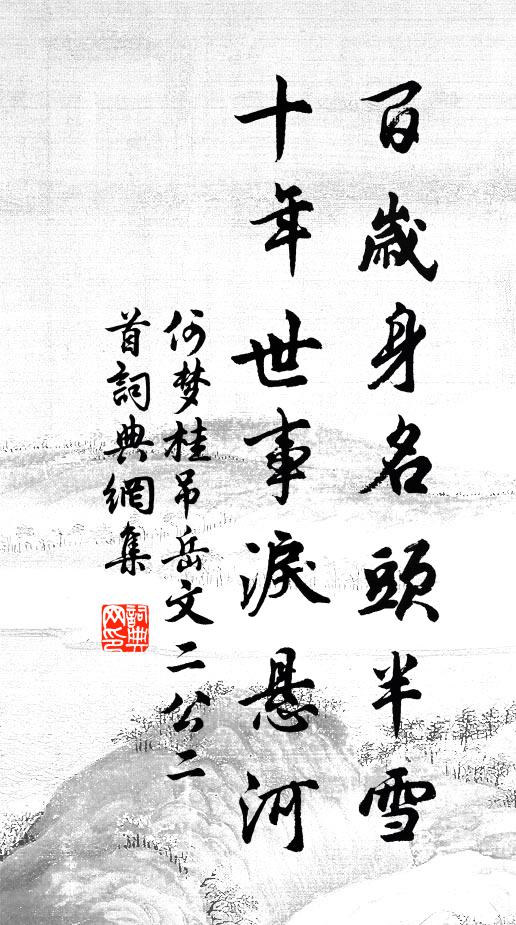 百歲身名頭半雪
十年世事淚悬河
何梦桂吊岳文二公二
首詞典網集
詞典網印